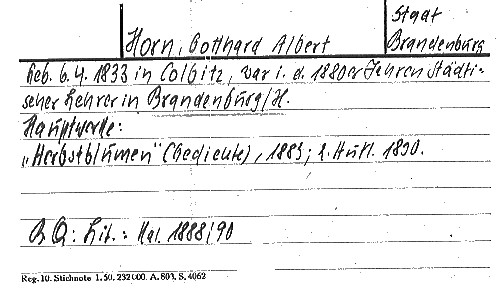 Horn, Gotthard Albert
Stadt
Brandenburg
Geb. 6.4.1833 in Colbitz, war i. d. 1880er Jahren Städti-
scher Lehrer in Brandenburg/H.
Hauptwerke:
„Herbstblumen" (Gedichte), 1883; 2. Aufl. 1890.
B Q: Lit.: Kal. 1888/90
Reg. 10. Stichnote 1. 50. 232000. A. 803. S. 4062